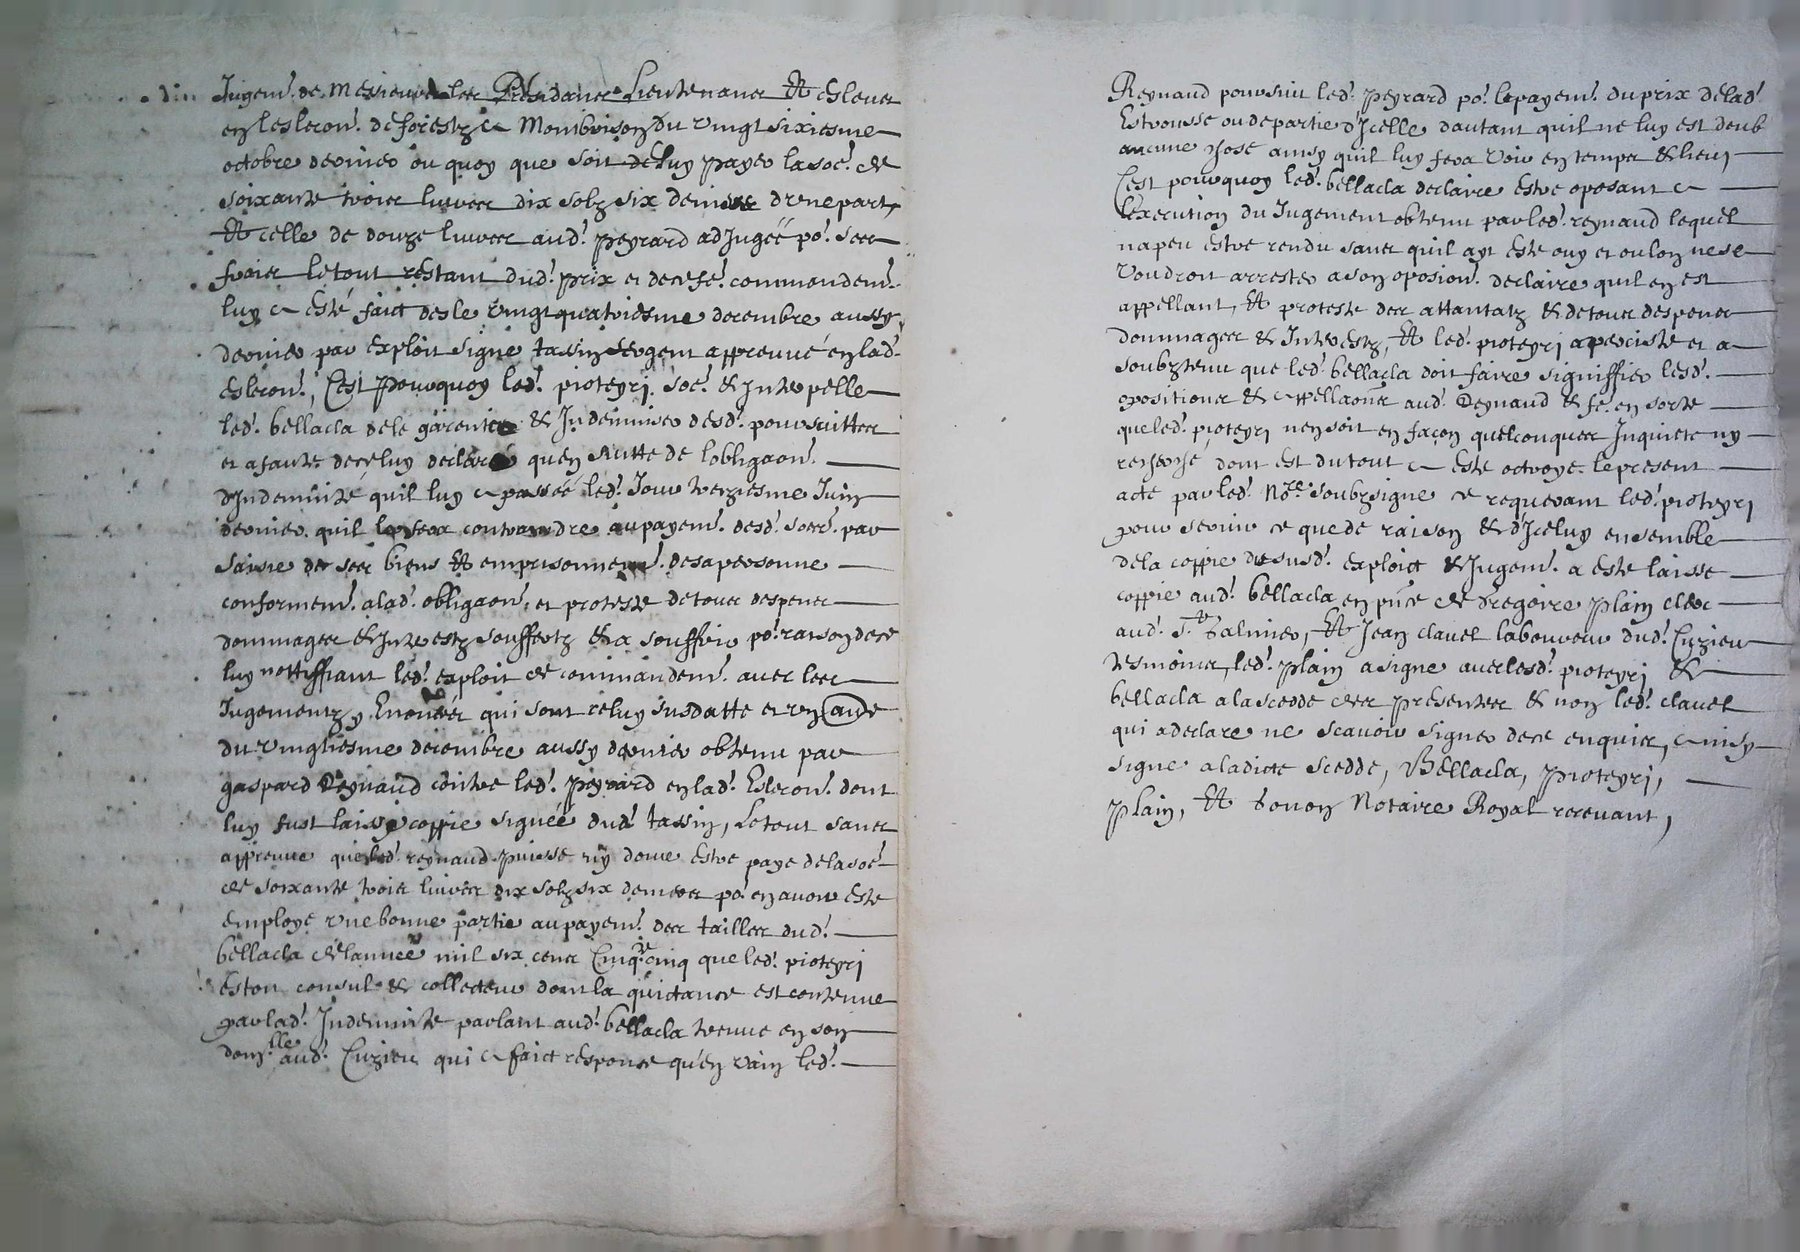 Jugem.t de Messieurs les Presidants Lieutenants Et esleus
en leslecon. de forestz a Montbrison du vingt sixiesme
octobre dernier ou quoy que soit de luy payer la so.e de
soixante trois livres dix solz six deniers dune part,
Et celle de douze livres aud.t peyrard adjugeé po.r ses
frais le tout restant dud.t prix et de ce fe.e commandem.t
luy a esté faict des le vingt quatriesme decembre aussy
dernier par exploit signe tassin sergent appreuvé en lad.
eslecon., Cest pourquoy led.t pioteyri so.e & interpelle
led.t bellacla de le garentir & Indemniser desd.t poursuittes
et a faute de ce luy declaré quen suitte de lobligaon.
dIndemnité quil luy a passeé led.t Jour treziesme Juin
dernier quil le fera contraindre au payem.t desd.t so.es par
saisie de ses biens Et emprisonnem.t de sa personne
conformem.t a lad.t obligaon. et proteste de tous despens
dommages & Interestz souffertz & a souffrir po.r raison de ce
luy nottiffiant led.t exploit de commandem.t avec les
Jugementz y Enoncés qui sont celuy susdatte et un autre
du vingtiesme decembre aussy dernier obtenu par
gaspard Reynaud contre led.t peyrard en lad.t Eslecon. dont
luy fust laissé coppie signeé dud.t tassin, Le tout sans
appreuve que led.t reynaud puisse ny doive estre paye de la so.e
de soixante trois livres dix solz six deniers po.r en avoir esté
employe une bonne partie au payem.t des tailles dud.t
bellacla de lanneé mil six cens Cinq.te cinq que led.t pioteyri
estoit consul & collecteur dont la quictance est contenue
par lad.t Indemnité parlant aud.t bellacla treuve en son
domi.lle aud.t Cuzieu qui a faict response qu'en vain led.t
Reynaud poursuit led.t peyrard po.r le payem.t du prix de lad.t
Estrousse ou de partie d'Icelle dautant quil ne luy est deub
aucune chose ainsy quil luy fera voir en temps & lieu
Cest pourquoy led.t bellacla declaire estre oposant a
Lexecution du Jugement obtenu par led.t reynaud lequel
na peu estre rendu sans quil ayt esté ouy et ou lon ne se
voudroit arrester a son oposion. declaire quil en est
appellant, Et proteste des attantatz & de tous despens
dommages & Interestz, Et led.t pioteyri a perciste et a
soubztenu que led.t bellacla doit faire signiffier lesd.t
opositions & appellaons aud.t Reynaud & fe.e en sorte
que led.t pioteyri nen soit en façon quelconques Inquiete ny
recherché dont est du tout a esté octroye le present
acte par led.t No.re soubzsigne ce requerant led.t pioteyri
pour servir ce que de raison & d'Iceluy ensemble
de la coppie de susd.t exploict & Jugem.t a esté laissé
coppie aud.t bellacla en p.nce de Gregoire plain clerc
aud.t S.t Galmier, Et Jean clavel laboureur dud.t Cuzieu
tesmoins, led.t plain a signe avec lesd.t pioteyri &
bellacla a la scedde des presentes & non led.t clavel
qui a declare ne scavoir signer de ce enquis, ainsy
signe a ladicte scedde, Bellacla, pioteyri,
plain, Et Notaire Royal recevant,